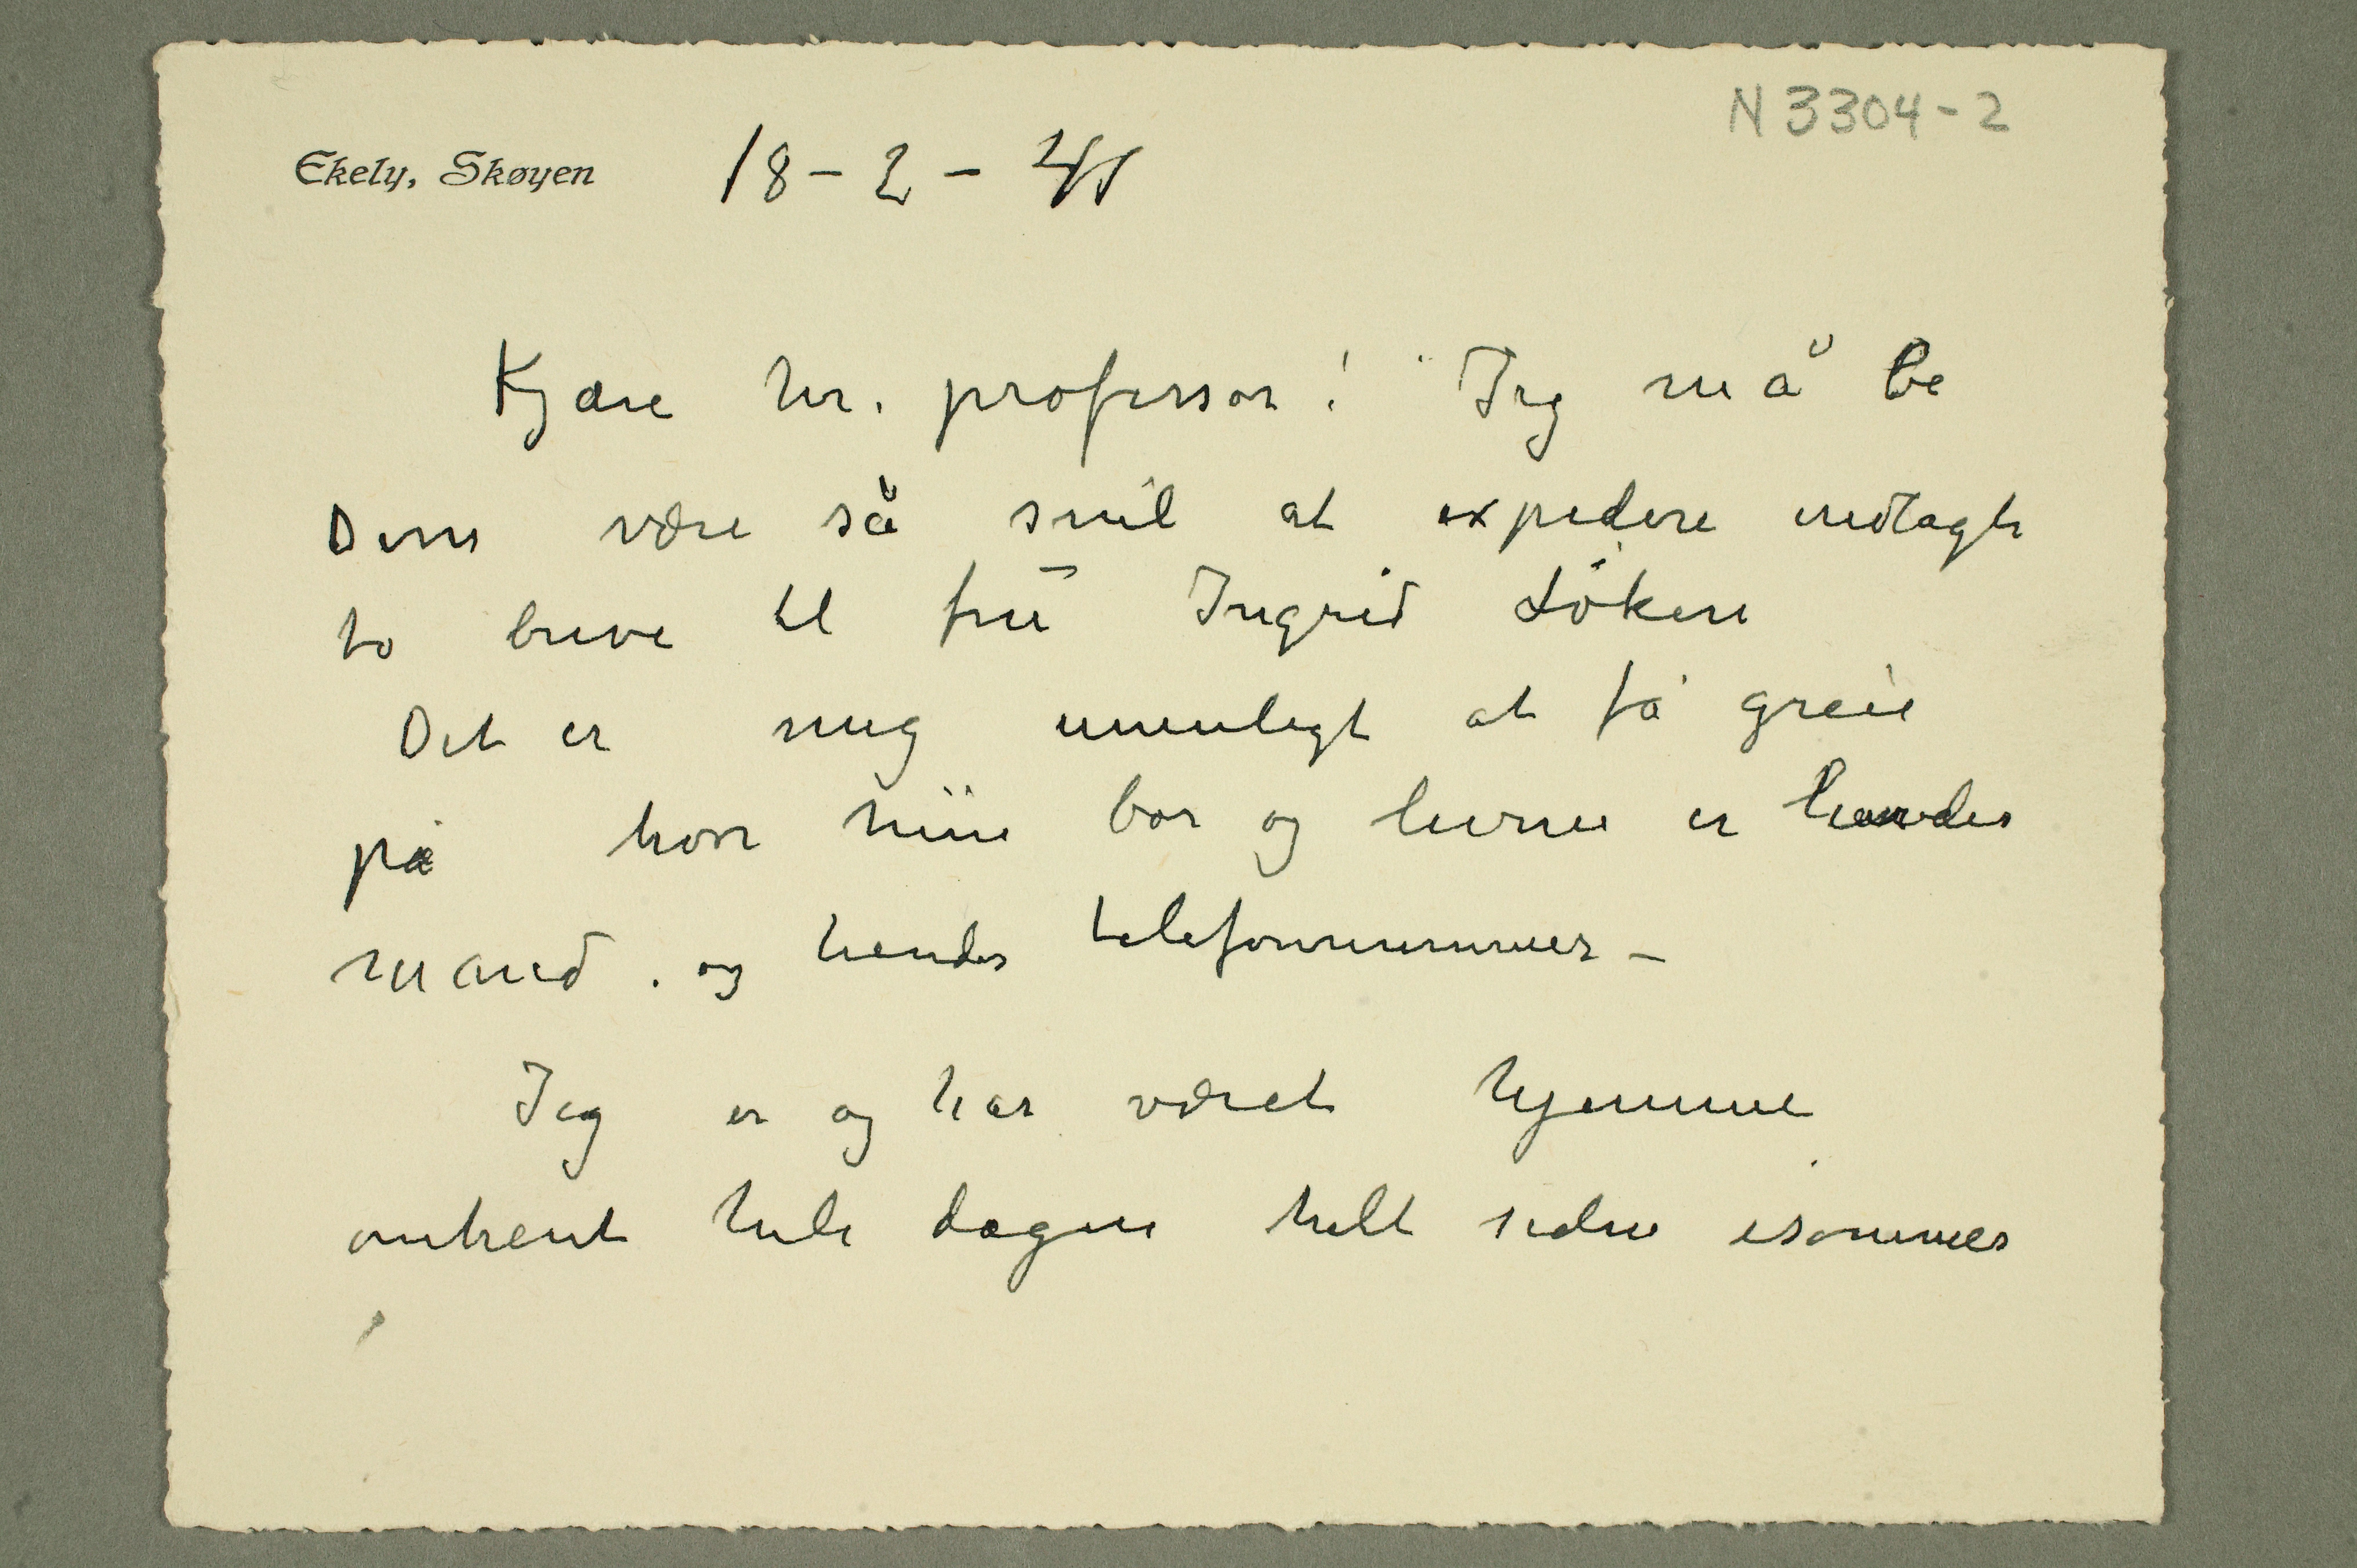 N 3304-2
Ekely, Skøyen 18-2-41
Kjære hr. professor! Jeg må be
Dem være så snil at expedere indlagte
to breve til fru Ingrid Löken
Det er mig umuligt at få greie
på hvor hun bor og hvem er hendes
mand. og hendes telefonnummer –
Jeg er og har været hjemme
omtrent hele dagen helt siden isommer